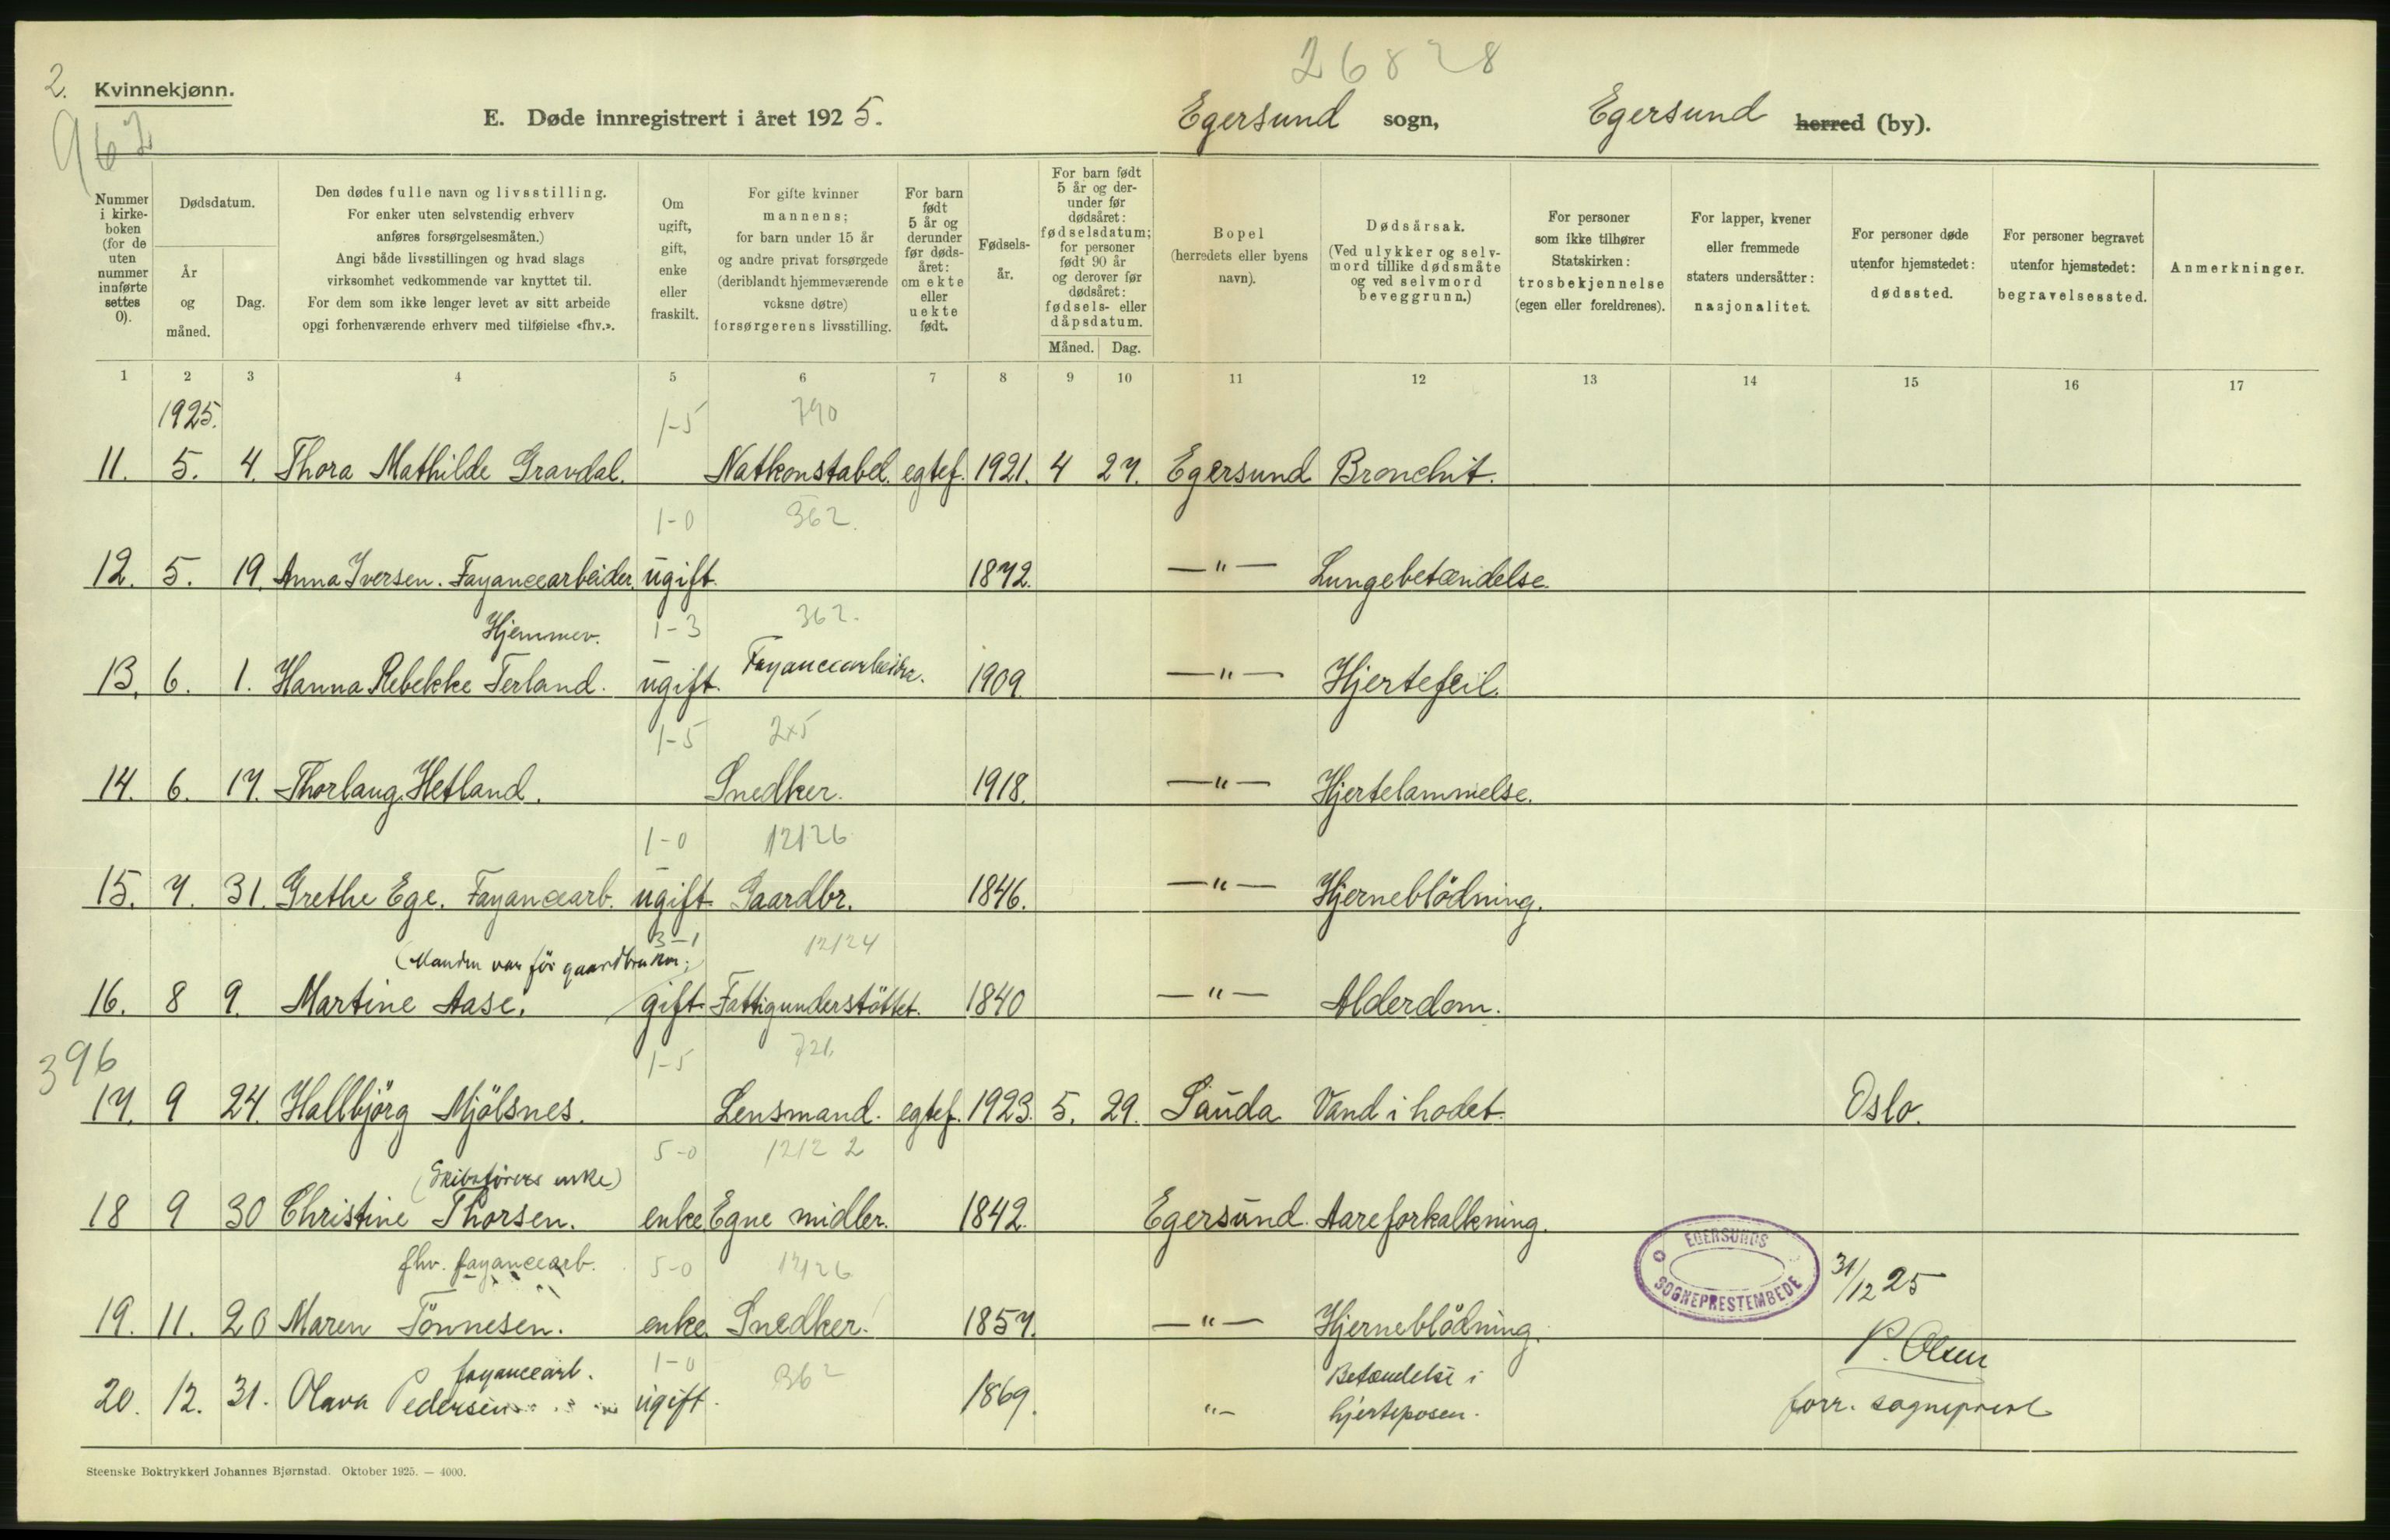 2.
Kvinnekjønn.
962
26828
E. Døde innregistrert i året 1925.
Egersund sogn,
Egersund herred (by).
Nummer i kirke-boken (for de uten nummer innførte settes 0).
Dødsdatum.
År og måned.
Dag.
Den dødes fulle navn og livsstilling.
For enker uten selvstendig erhverv
anføres forsørgelsesmåten.)
Angi både livsstillingen og hvad slags
virksomhet vedkommende var knyttet til.
For dem som ikke lenger levet av sitt arbeide
opgi forhenværende erhverv med tilføielse «fhv.».
Om ugift, gift, enke eller fraskilt.
For gifte kvinner
mannens;
for barn under 15 år
og andre privat forsørgede
(deriblandt hjemmeværende
voksne døtre)
forsørgerens livsstilling.
For barn født 5 år og derunder før døds-året: om ekte eller uekte født.
Fødsels-år.
For barn født 5 år og der-under før dødsåret: fødselsdatum; for personer født 90 år og derover før dødsåret: fødsels- eller dåpsdatum.
Måned.
Dag.
Bopel
(herredets eller byens
navn).
Dødsårsak.
(Ved ulykker og selv-
mord tillike dødsmåte
og ved selvmord
beveggrunn.)
For personer
som ikke tilhører
Statskirken:
trosbekjennelse
(egen eller foreldrenes).
For lapper, kvener
eller fremmede
staters undersåtter:
nasjonalitet.
For personer døde
utenfor hjemstedet:
dødssted.
For personer begravet
utenfor hjemstedet:
begravelsessted.
Anmerkninger.
1 2 3 4 5 6 7 8 9 10 11 12 13 14 15 16 17
1925.
1-5 790
11. 5. 4. Thora Mathilde Gravdal. Natkonstabel. egtef. 1921. 4 27. Egersund Bronchit.
1-0 362.
12. 5. 19. Anna Iversen. Fayancearbeider. ugift. 1872. —"— Lungebetændelse.
Hjemmev. 1-3 362.
13. 6. 1. Hanna Rebekke Terland. ugift. Fayancearbeider. 1909. —"— Hjertefeil.
1-5 2x5
14. 6. 17. Thorlaug Hetland. Snedker. 1918. —"— Hjertelammelse.
1-0 12126
15. 7. 31. Grethe Ege. Fayancearb. ugift. Gaardbr. 1846. —"— Hjerneblödning.
(Manden var før gaardbruker; 3-1 12124
16. 8 9. Martine Aase. gift Fattigunderstöttet. 1840 —"— Alderdom.
396
1-5 721
17. 9 24. Hallbjörg Mjölsnes. Lensmand. egtef. 1923. 5. 29. Sauda Vand i hodet. Oslo.
5-0 1212 2
(Skibsførers enke)
18 9 30 Christine Thorsen. enke. Egne midler. 1842. Egersund. Aareforkalkning.
fhv. fayancearb. 5-0 12126
EGERSUNDS SOGNEPRESTEMBEDE
31/12 25
19. 11. 20 Maren Tönnesen. enke. Snedker. 1857. —"— Hjerneblödning.
P. Olsen
fayancearb. 1-0 362
20. 12. 31. Olava Pedersen ugift. 1869. "— Betændelse i
hjerteposen.
forr. sogneprest
Steenske Boktrykkeri Johannes Bjørnstad. Oktober 1925. — 4000.